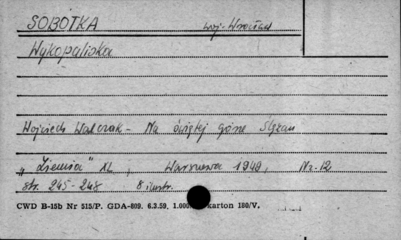 SOBOTKA woj. Wrocław
Wykopaliska
Wojciech Walczak - Na świętej górze Ślężan
"Ziemia" XL, Warszawa 1949, Nr. 12
str. 245-248 8 ilustr.
CWD B-15b Nr 515/P. GDA-809. 6.3.59. 1.000 karton 180/V.